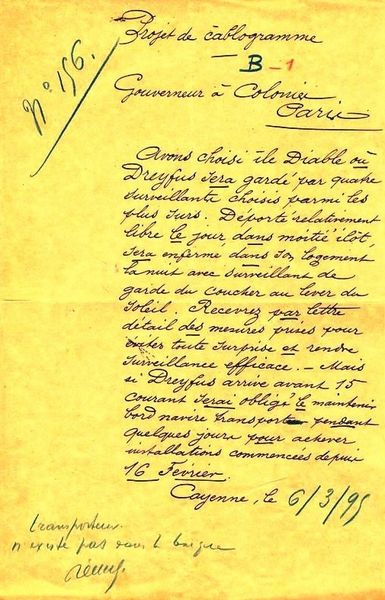 Projet de câblogramme
N° 156.
B-1
Gouverneur à Colonies
Paris
Avons choisi île Diable où
Dreyfus sera gardé par quatre
surveillants choisis parmi les
plus surs. Déporté relativement
libre le jour dans moitié îlot,
sera enfermé dans son logement
la nuit avec surveillant de
garde du coucher au lever du
soleil. Recevrez par lettre
détail des mesures prises pour
éviter toute surprise et rendre
surveillance efficace. — Mais
si Dreyfus arrive avant 15
courant serai obligé le maintenir
bord navire transport pendant
quelques jours pour achever
installations commencées depuis
16 Février.
Cayenne, le 6/3/95
transporteur
n'existe pas dans le